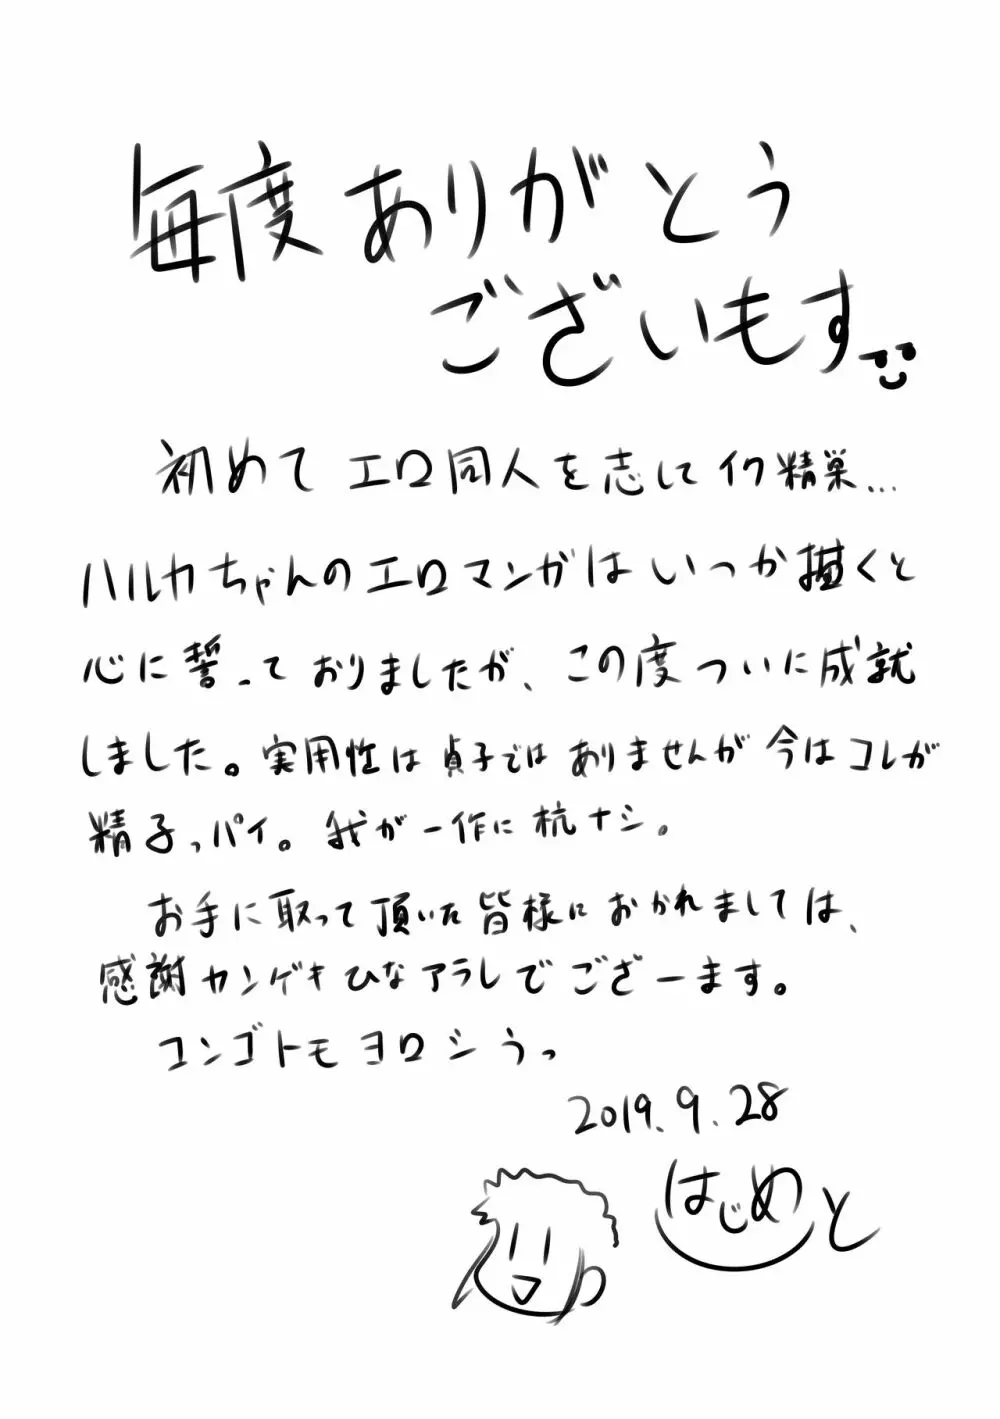 毎度ありがとう
ございもす
初めてエロ同人を志してイク精巣…
ハルカちゃんのエロマンガはいつか描くと
心に誓っておりましたが、この度ついに成就
しました。実用性は貞子ではありませんが今はコレが
精子っパイ。我が一作に杭ナシ。
お手に取って頂いた皆様におかれましては、
感謝カンゲキひなアラレでござーます。
コンゴトモヨロシうっ
2019.9.28
はじめと